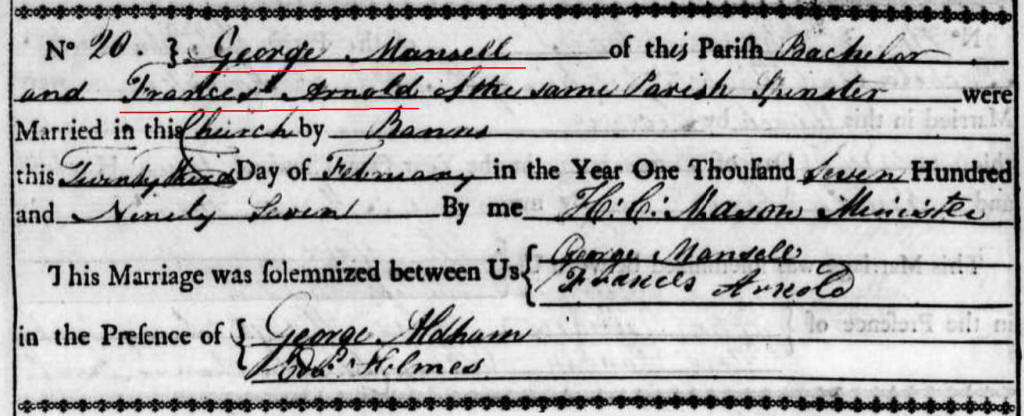 No 20. } George Mansell of this Parish Bachelor
and Frances Arnold of the same Parish Spinster were
Married in this Church by Banns
this Twenty third Day of February in the Year One Thousand Seven Hundred
and Ninety Seven By me H: C: Mason Minister
This Marriage was solemnized between Us { George Mansell
Frances Arnold
in the Presence of { George Aldham
Edwd. Holmes